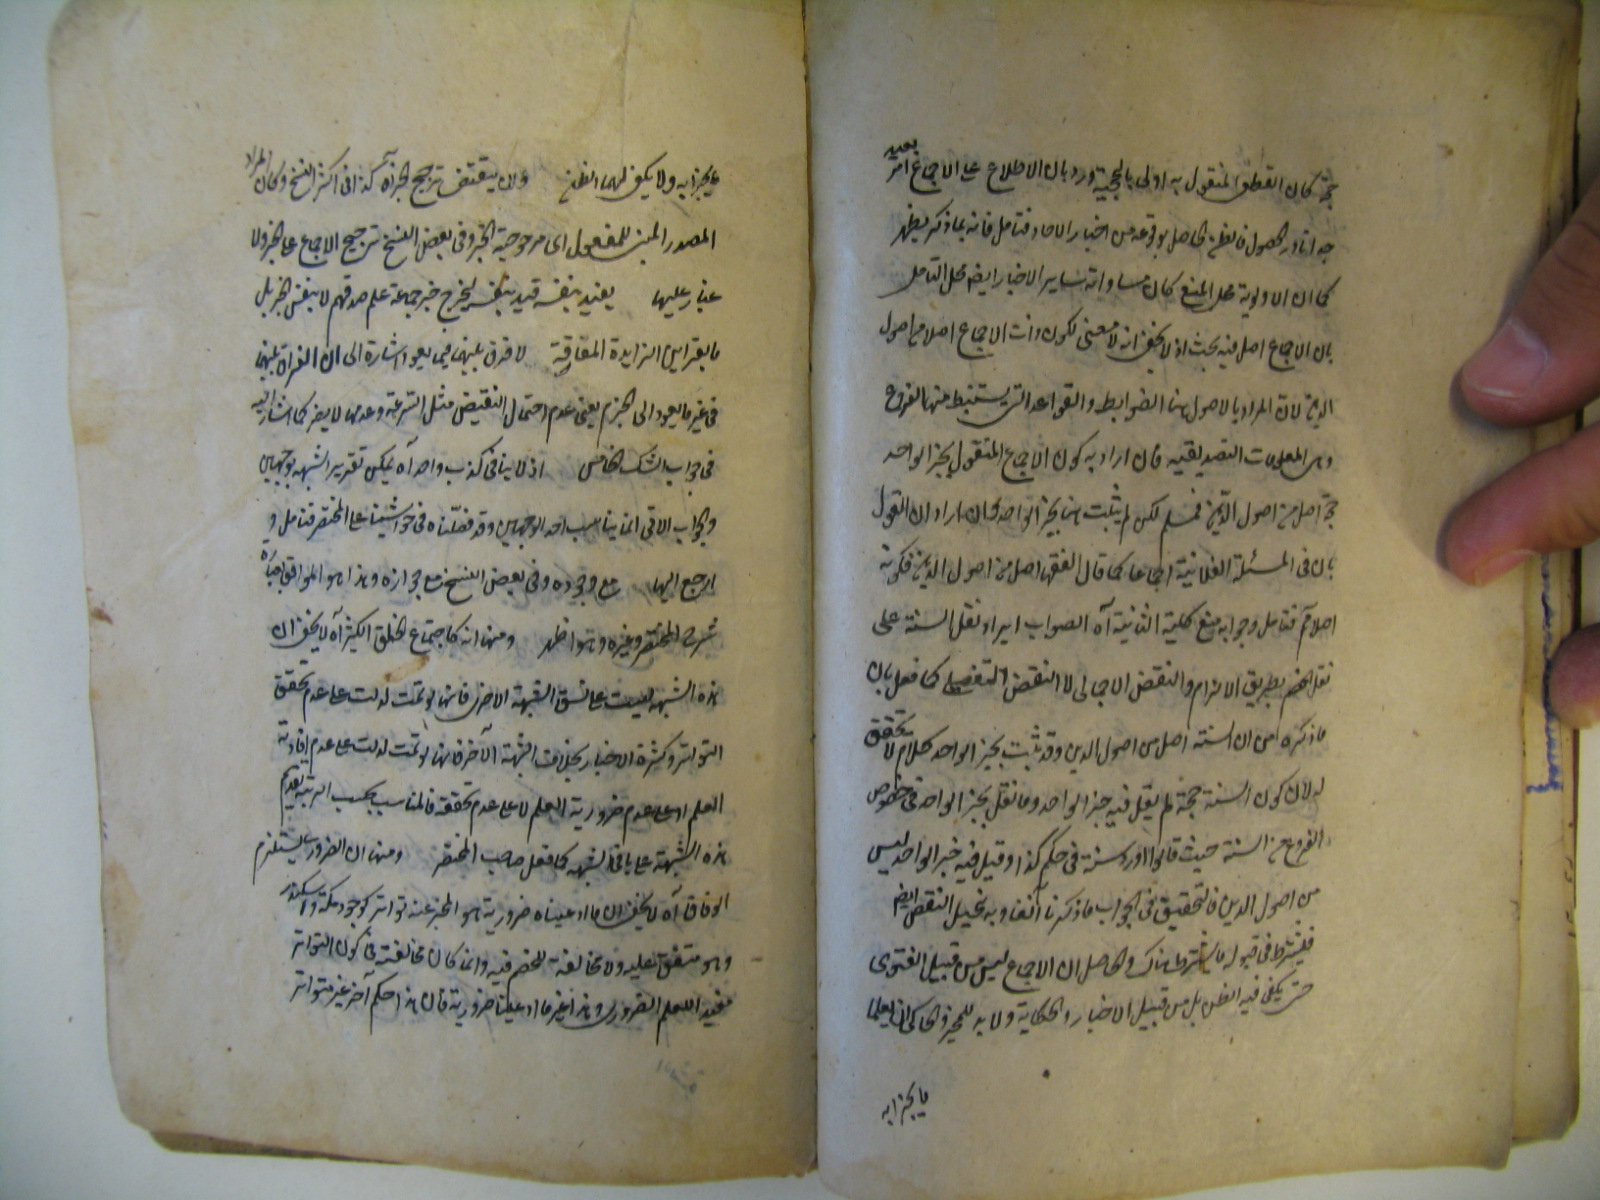 حجة كان القطعي المنقول به اولى بالحجية ورد بان الاطلاع على الاجماع امر بعيد
جدا نادر الحصول فالظن الحاصل بوقوعه من اخبار الاحاد فتامل فانه بما ذكر يظهر
كما ان الاولوية محل المنع كان مساواته لساير الاخبار ايضا محل التامل
بان الاجماع اصل فيه بحث اذ لا يخفى انه لا معنى لكون ذات الاجماع اصلا من اصول
الدين لان المراد بالاصول هنا الضوابط والقواعد التي يستنبط منها الفروع
وهي المعلومات التصديقية فان اراد به كون الاجماع المنقول بخبر الواحد
حجة اصل من اصول الدين فمسلم لكن لم يثبت هنا بخبر الواحد وان اراد ان القول
بان في المسئلة الفلانية اجماعا كما قال الفقها اصل من اصول الدين فكونه
اصلا ثم فتامل وجوابه منع كلية الثانية آه الصواب ايراد نقل السنة على
نقل الخصم بطريق الالزام والنقض الاجمالي لا النقض التفصيلي كما فعل بان
ما ذكره من ان السنة اصل من اصول الدين وقد ثبت بخبر الواحد كلام لا تحقق
له لان كون السنة حجة لم يقل فيه خبر الواحد وما نقل بخبر الواحد في خصوص
الفروع من السنة حيث قالوا ورد سنة في حكم كذا وقيل فيه خبر الواحد ليس
من اصول الدين فالتحقيق في الجواب ما ذكرنا آنفا وبه تخيل النقض ايضا
فيشترط في قبوله ما يشترط هناك والحاصل ان الاجماع ليس من قبيل الفتوى
حتى يكفي فيه الظن بل من قبيل الاخبار والحكاية ولا بد للمخبر والحاكي ان يعلما
ما يخبرا به
ما يخبرا به ولا يكفي لهما الظن والا يقتضي ترجيح الخبر آه كذا في اكثر النسخ وكان المراد
المصدر المبني للمفعول اي مرجوحية الخبر وفي بعض النسخ ترجيح الاجماع على الخبر ولا
غبار عليها يفيد بنفسه قيد بنفسه ليخرج خبر جماعة علم صدقهم لا بنفس الخبر بل
بالقراين الزايدة المفارقة لا فرق بينهما فيما يعود اشارة الى ان الفرق بينهما
في غير ما يعود الى الجزم يعني عدم احتمال النقيض مثل السرعة وعدمها لا يضر كما اشار اليه
في جواب الشك الخامس اذ لا ينافي كذب واحد آه يمكن تقرير الشبهه بوجهين
والجواب الاتي انما يناسب احد الوجهين وقد فصلناه في حواشينا على المختصر فتامل و
ارجع اليها مع وجوده وفي بعض النسخ مع جوازه وهذا هو الموافق لعبارة
شرح المختصر وغيره وهو اظهر ومنها انه كاجتماع الخلق الكثير آه لا يخفى ان
هذه الشبهه ليست على نسق الشبهة الاخرى فانها لو تمت لدلت على عدم تحقق
التواتر وكثرة الاخبار بخلاف الشبهة الاخر فانها لو تمت لدلت على عدم افادته
العلم او على عدم ضرورية العلم لا على عدم تحققه فالمناسب بحسب الترتيب تقديم
هذه الشبهة على باقي الشبهه كما فعل صاحب المختصر ومنها ان الضروري يستلزم
الوفاق آه لا يخفى ان ما ادعيناه ضروريته هو المخبر عنه تواتر كوجود مكة واسكندر
وهو متفق عليه ولا مخالفة للخصم فيه وانما كان مخالفته في كون التواتر
مفيد العلم الضروري وهذا غير ما ادعينا ضروريته فان هذا حكم آخر غير متواتر